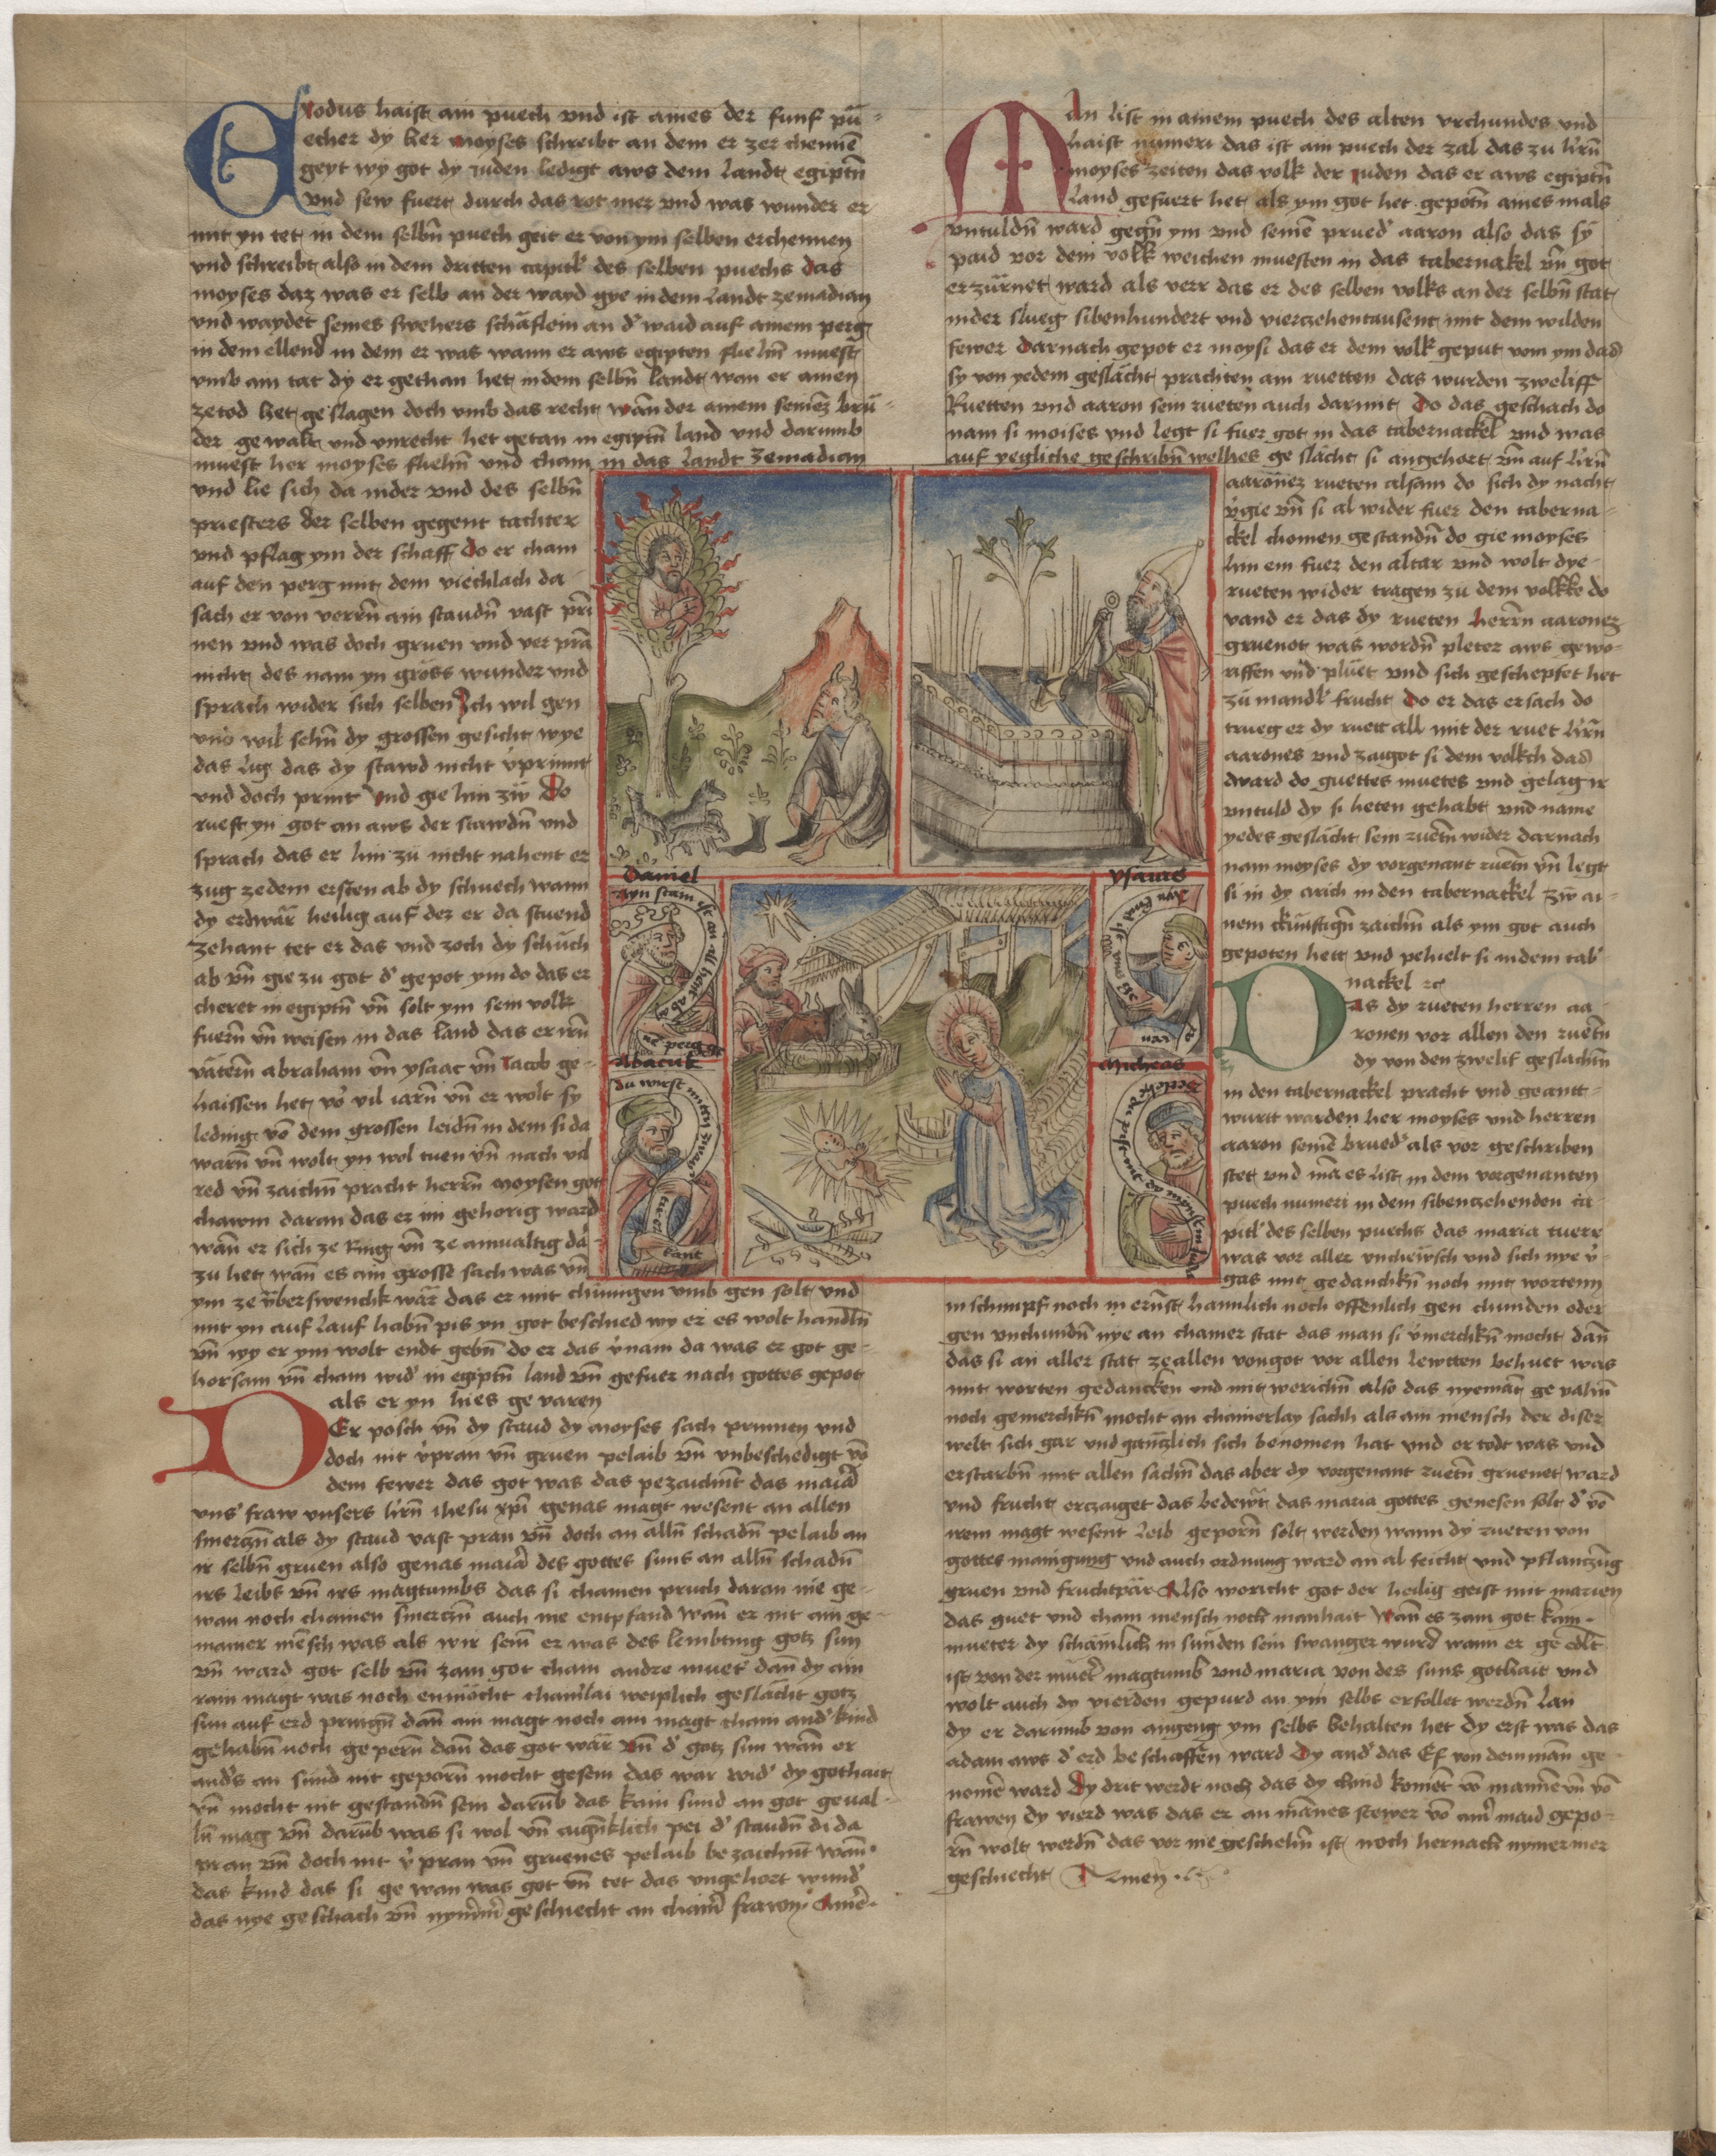 Exodus haist ain puech vnd ist aines der funf pu-
echer dy her moyses schreibt an dem er zer chennē
geyt wy got dy juden ledigt aws dem landt egiptn̄
vnd sew fuert durch das rot mer vnd was wunder er
mit yn tet in dem selbn̄ puech geit er von ym selben erchennen
vnd schreibt also in dem dritten capitl des selben puechs das
moyses daz was er selb an der wayd gye in dem landt zemadian
vnd waydet seines swehers schäflein an d' waid auf ainem perg
in dem ellend in dem er was wann er aws egipten fliehn̄ muest
vmb ain tat dy er gethan het in dem selbn̄ landt wan er ainen
zetod het geslagen doch vmb das recht wan der ainem seinez brü-
der gewalt vnd vnrecht het getan in egiptn̄ land vnd darumb
muest her moyses fliehn̄ vnd cham in das landt zemadian
vnd lie sich da nider vnd des selbn̄
priesters der selben gegent tachter
vnd pflag ym der schaff do er cham
auf den perg mit dem viechlach da
sach er von verrn̄ ain staudn̄ vast prin
nen vnd was doch gruen vnd ver pran
nicht des nam yn gross wunder vnd
sprach wider sich selben Ich wil gen
vnd wil sehn̄ dy grossen gesicht wye
das lig das dy stawd nicht v'prinnt
vnd doch print Vnd gie hin zw Do
rueft yn got an aws der stawdn̄ vnd
sprach das er hin zu nicht nahent er
zug zedem ersten ab dy schuech wann
dy erd wär heilig auf der er da stuend
zehant tet er das vnd zoch dy schuch
ab vn̄ gie zu got d' gepot ym do das er
cheret in egiptn̄ vn̄ solt ym sein volk
fuern̄ vn̄ weisen in das land das er irn̄
vätern̄ abraham vn̄ ysaac vn̄ Jacob ge-
haissen het vo' vil iarn̄ vn̄ er wolt sy
leding vō dem grossen leidn̄ in dem si da
warn̄ vn̄ wolt yn wol tuen vn̄ nach vil
red vn̄ zaichn̄ pracht herrn̄ moysen got
chawm daran das er im gehorig ward
wan̄ er sich ze Ring vn̄ ze ainualtig da-
zu het wan̄ es ain grosse sach was vn̄
ym ze überswenchk wär das er mit chünigen vmb gen solt vnd
mit yn auf lauf habn̄ pis yn got beschied wy er es wolt handln̄
vn̄ wy er ym wolt endt gebn̄ do er das v'nam da was er got ge-
horsam vn̄ cham wid' in egiptn̄ land vn̄ gefuer nach gottes gepot
als er yn hies ge varen
Der posch vn̄ dy staud dy moyses sach prinnen vnd
doch nit v'pran vn̄ gruen pelaib vn̄ vnbeschedigt vō
dem fewer das got was das pezaichnt das maria
vns' fraw vnsers hrn̄ ihesu xp̄i genas magt wesent an allen
smerczn̄ als dy staud vast pran vn̄ doch an alln̄ schadn̄ pelaib an
ir selbn̄ gruen also genas maria des gottes suns an alln̄ schadn̄
irs leibs vn̄ irs magtumbs das si chainen pruch daran nie ge-
wan noch chainen smerczn̄ auch nie entpfand wan̄ er nit ain ge-
mainer mēsch was als wir sein er was des lembting gotz sun
vn̄ ward got selb vn̄ zam got cham andre muet' dan̄ dy ain
rain magt was noch enmöcht chainlai weiplich geslächt gotz
sun auf erd pringn̄ dan̄ ain magt noch ain magt cham and' kind
gehabn̄ noch ge pern̄ dan̄ das got wär vn̄ d' gotz sun wan̄ er
and's an sünd nit geporn̄ mocht gesein das war wid' dy gothait
vn̄ mocht nit gestandn̄ sein darūb das kain sund an got geual-
ln̄ mag vn̄ darūb was si wol vn̄ aign̄klich pei d' staudn̄ di da
pran vn̄ doch nit v'pran vn̄ gruenes pelaib bezaichnt wan̄
das kind das si ge wan was got vn̄ tet das vngehort wund'
das nye geschach vn̄ nymm' geschiecht an chainr frawn. Amē.
Man list in ainem puech des alten vrchundes vnd
haist numeri das ist ain puech der zal das zu hrn̄
moyses zeiten das volk der juden das er aws egiptn̄
land gefuert het als ym got het gepotn̄ aines mals
vntuldn̄ ward gegn̄ ym vnd seinē prued' aaron also das sy
paid vor dem volkk weichen muesten in das tabernakel vn̄ got
erzürnet ward als verr das er des selben volks an der selbn̄ stat
nider slueg sibenhundert vnd vierzehentausent mit dem wilden
fewer Darnach gepot er moysi das er dem volk geput vom ym das
sy von yedem geslächt prachten ain ruetten das wurden zweliff
Ruetten vnd aaron sein rueten auch darmit Do das geschach do
nam si moises vnd legt si fuer got in das tabernackel vnd was
auf yegliche geschribn̄ welhes ge slächt si angehort vn̄ auf hrn̄
aaronez rueten alsam do sich dy nacht
v'gie vn̄ si al wider fuer den taberna-
ckel chomen gestandn̄ do gie moyses
hin ein fuer den altar vnd wolt dye
rueten wider tragen zu dem volkke do
vand er das dy rueten herrn̄ aaronez
gruenot was wordn̄ pleter aws gewo-
rffen vnd pluet vnd sich geschepfet het
zu mandl frucht Do er das ersach do
trueg er dy ruett all mit der ruet hrn̄
aarones vnd zaigot si dem volkch das
dward do guettes muetes vnd gelag ir
vntuld dy si heten gehabt vnd name
yedes geslächt sein ruetn̄ wider darnach
nam moyses dy vorgenant ruetn̄ vn̄ legt
si in dy arich in den tabernackel zw ai-
nem chünftign̄ zaichn̄ als ym got auch
gepoten hett vnd pehielt si in dem tab'
nackel ꝛc
Das dy rueten herren aa-
ronen vor allen den ruetn̄
dy von den zwelif geslächn̄
in den tabernackel pracht vnd geantt-
wurtt warden her moyses vnd herren
aaron seinē brued' als vor geschriben
stet vnd mā es list in dem vorgenanten
puech numeri in dem sibenzehenden ca-
pitl des selben puechs das maria tuere
was vor aller vncheẅsch vnd sich nye v'-
gas mit gedanckn̄ noch mit wortenn
in schimpf noch in ernst haimlich noch offenlich gen chunden oder
gen vnchundn̄ nye an chainer stat das man si v'merchkn̄ mocht dan̄
das si an aller stat zeallen von got vor allen lewtten behuet was
mit worten gedancken vnd mit werichn̄ also das nyemāt ge valn̄
noch gemerchkn̄ mocht an chainerlay sachh als ain mensch der diser
welt sich gar vnd gänzlich sich benomen hat vnd er todt was vnd
erstarbn̄ mit allen sachn̄ das aber dy vorgenant ruetn̄ gruenet ward
vnd frucht erczaiget das bedewt das maria gottes genesen solt d' vō
irem magt wesent leib geporn̄ solt werden wann dy rueten von
gottes mainigung vnd auch ordnung ward an al feicht vnd pflanczūg
gruen vnd fruchtpär Also woricht got der heilig geist mit marien
das guet vnd cham mensch noch manhait Wan̄ es zam got kain
mueter dy schämlich in sünden sein swanger wurd wann er ge edlt
ist von der muet' magtumb vnd maria von des suns gothait vnd
wolt auch dy vierden gepurd an ym selbs erfollet werdn̄ lan
dy er darumb von angeng ym selbs behalten het Dy erst was das
adam aws d' erd beschaffen ward Dy and' das Ef von dem man̄ ge-
nomē ward Dy drit werdt noch das dy chind komēt vō mannē vn̄ vō
frawen Dy vierd was das er an mānes stewer vō ainr maid gepo-
rn̄ wolt werdn̄ das vor nie geschehn̄ ist noch hernach nymermer
geschiecht Amen
Daniel
ayn stain ist an all hent ab
ne perg
Ysaias
Abacuk
du wirst mitten zway
tier er
kant
Micheas